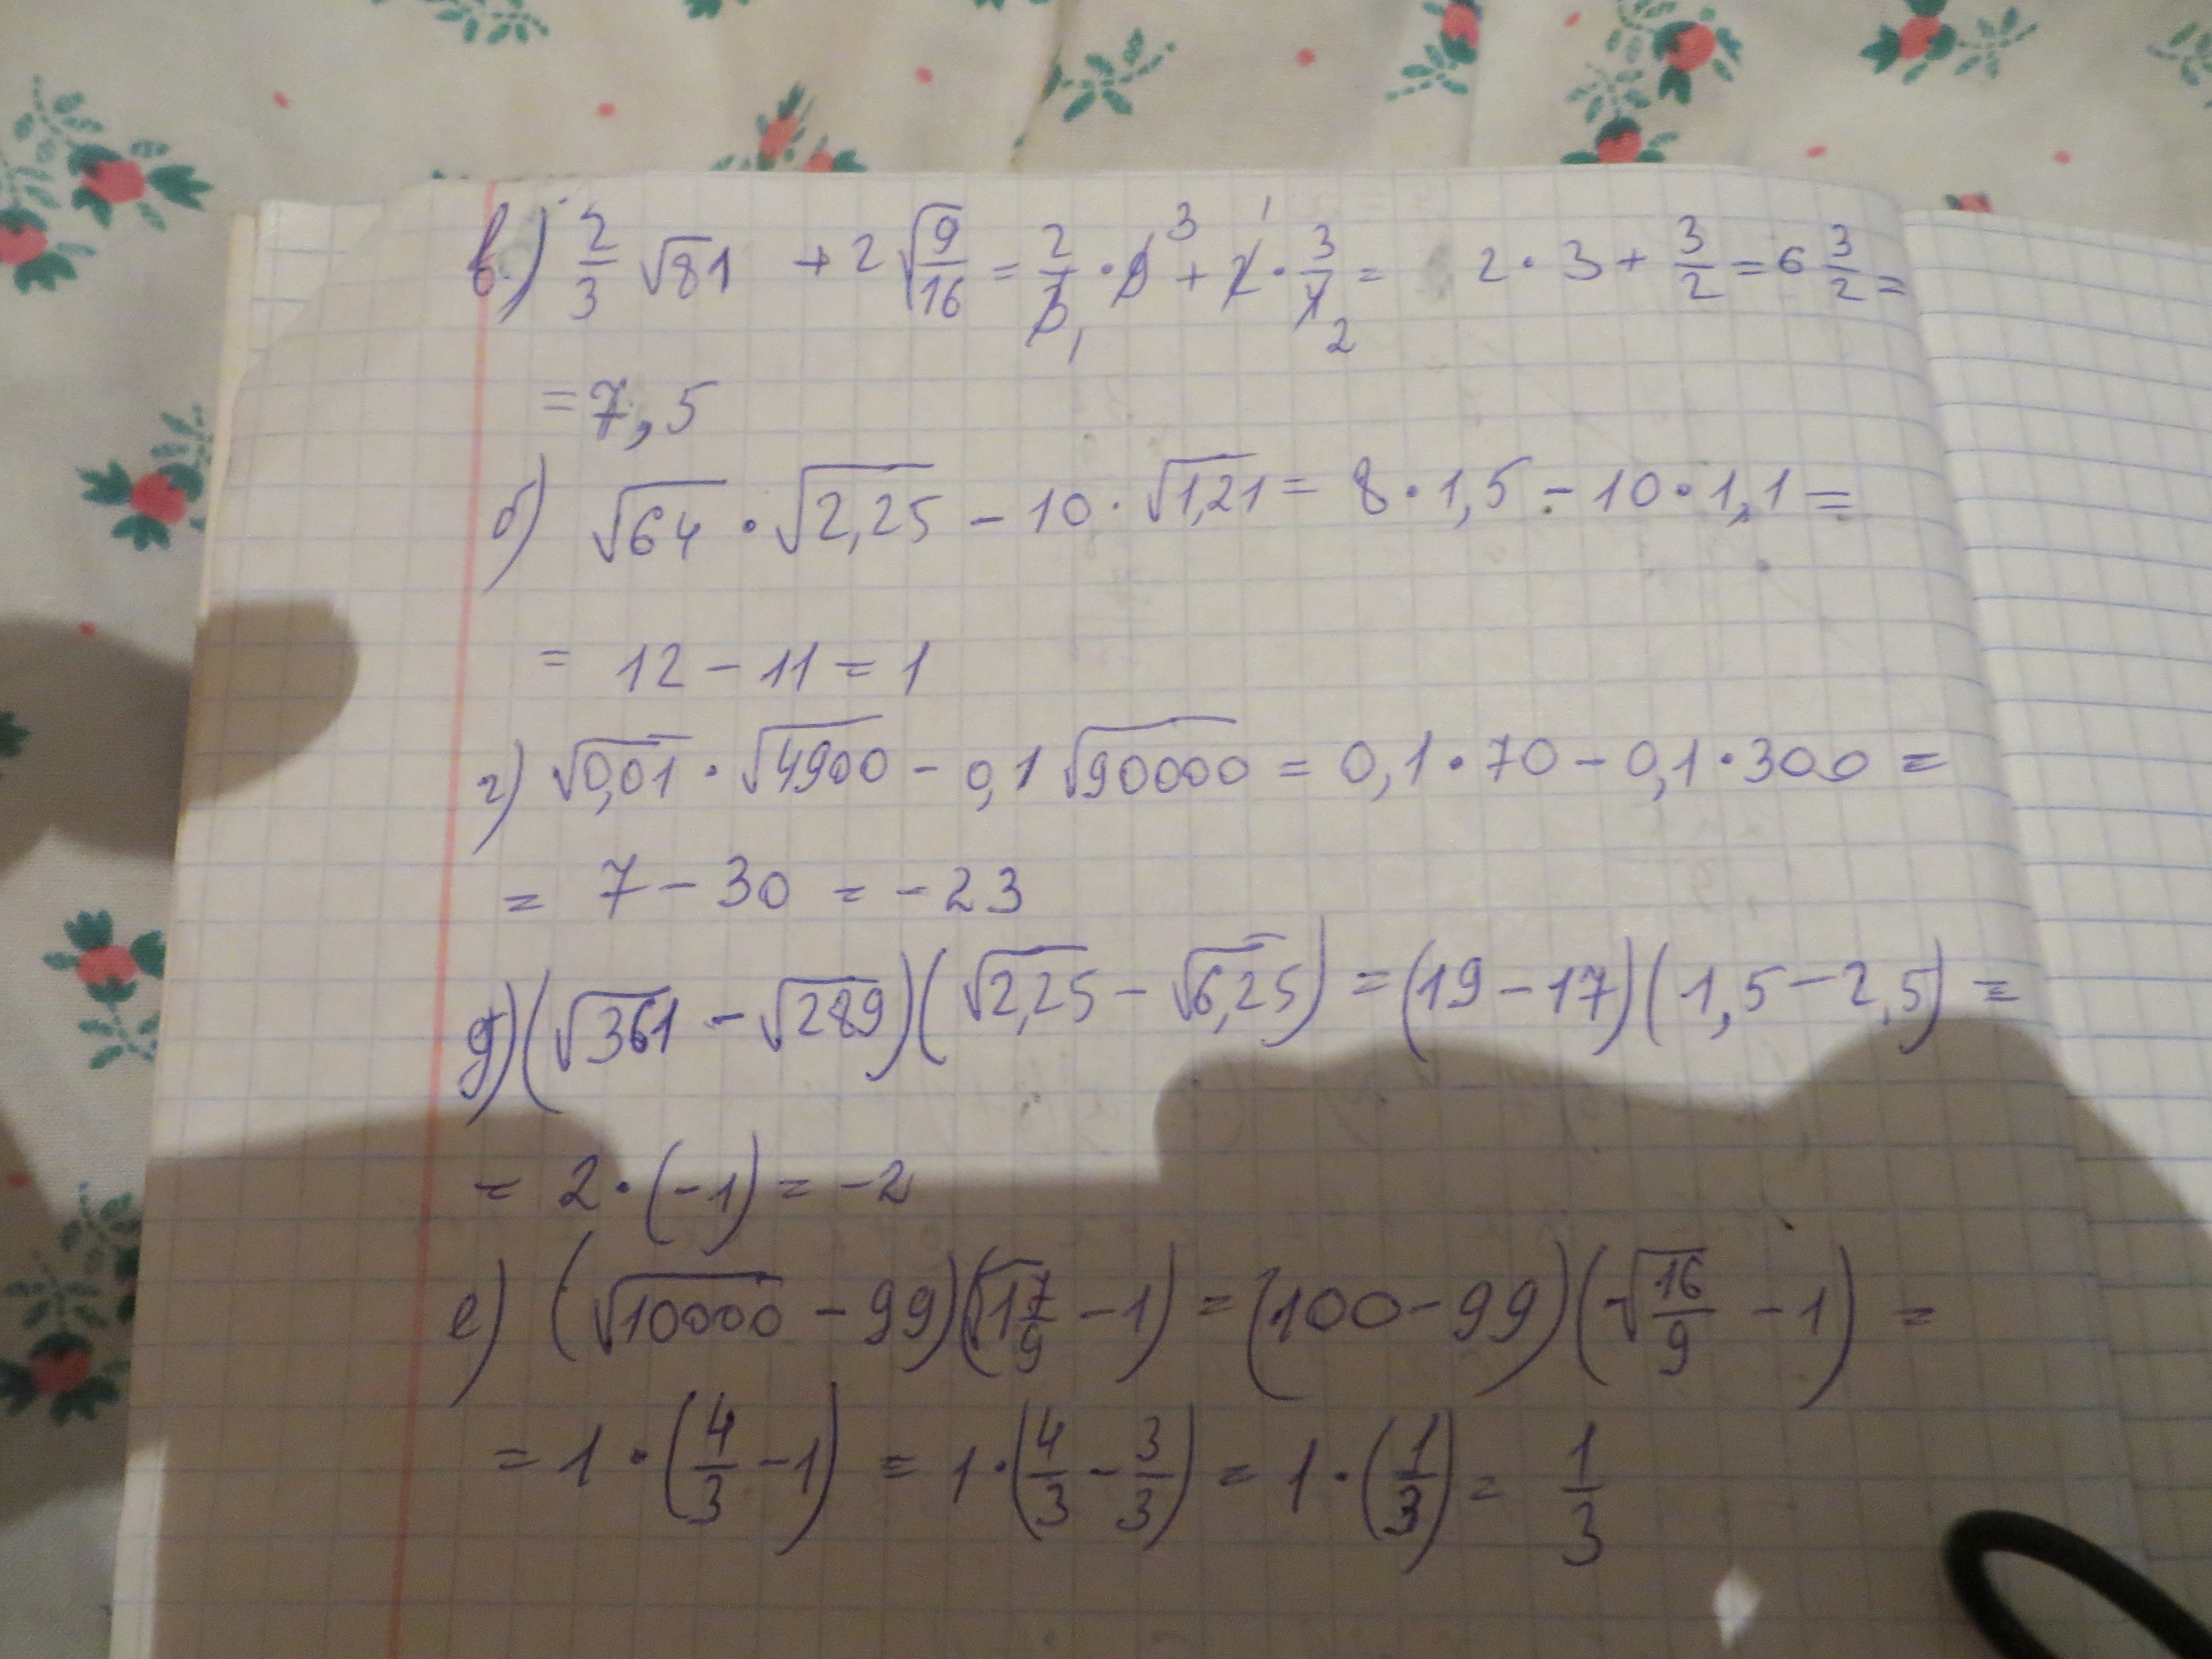 в) 2/3 √81 + 2√(9/16) = 2/3₁ · 9³ + 2¹ · 3/4₂ = 2 · 3 + 3/2 = 6 3/2 =
= 7,5
б) √64 · √2,25 − 10 · √1,21 = 8 · 1,5 − 10 · 1,1 =
= 12 − 11 = 1
г) √0,01 · √4900 − 0,1 √90000 = 0,1 · 70 − 0,1 · 300 =
= 7 − 30 = −23
д) (√361 − √289)(√2,25 − √6,25) = (19 − 17)(1,5 − 2,5) =
= 2 · (−1) = −2
е) (√10000 − 99)(√(1 7/9) − 1) = (100 − 99)(√(16/9) − 1) =
= 1 · (4/3 − 1) = 1 · (4/3 − 3/3) = 1 · (1/3) = 1/3